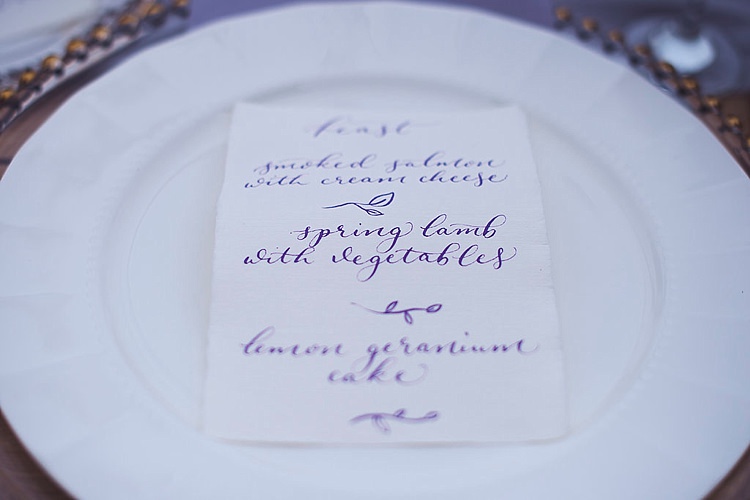 feast
smoked salmon
with cream cheese
spring lamb
with vegetables
lemon geranium
cake